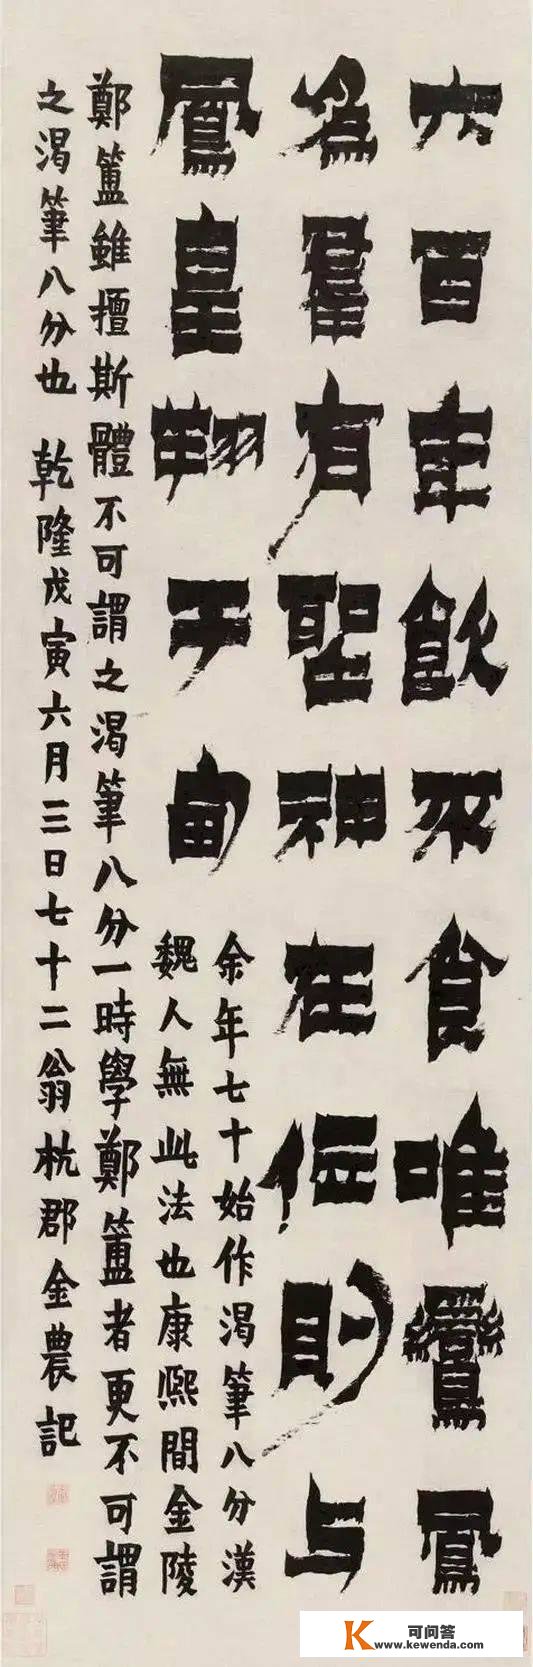 六百年飲不食唯鸞鳳
為羣有聖神在位則与
鳳皇翔于甸
余年七十始作渴筆八分漢
魏人無此法也康熙間金陵
鄭簠雖擅斯體不可謂之渴筆八分一時學鄭簠者更不可謂
之渴筆八分也 乾隆戊寅六月三日七十二翁杭郡金農記
可问答
www.kewenda.com